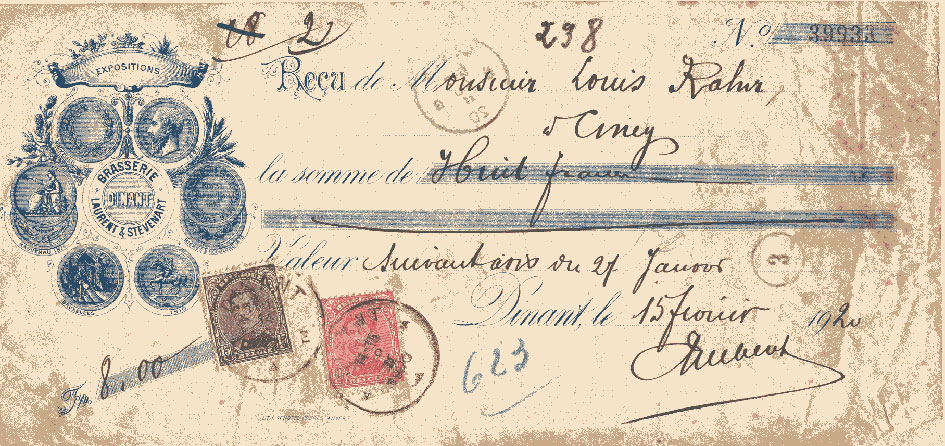 18 2
238
N.º 39933
EXPOSITIONS
Reçu de Monsieur Louis Rahir
à Ciney
la somme de Huit francs
BRASSERIE
DINANT
LAURENT & STEVENART
Valeur Suivant avis du 27 Janvier
3
Dinant, le 15 février 1920
Fr. 8,00
623